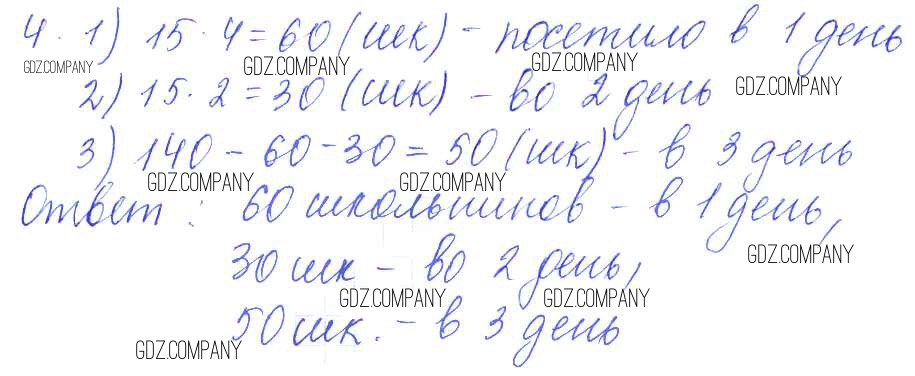 4. 1) 15 · 4 = 60 (шк) - посетило в 1 день
GDZ.COMPANY GDZ.COMPANY GDZ.COMPANY
2) 15 · 2 = 30 (шк) - во 2 день GDZ.COMPANY
3) 140 - 60 - 30 = 50 (шк) - в 3 день
GDZ.COMPANY GDZ.COMPANY
Ответ: 60 школьников - в 1 день,
GDZ.COMPANY
30 шк - во 2 день,
GDZ.COMPANY GDZ.COMPANY
50 шк. - в 3 день
GDZ.COMPANY